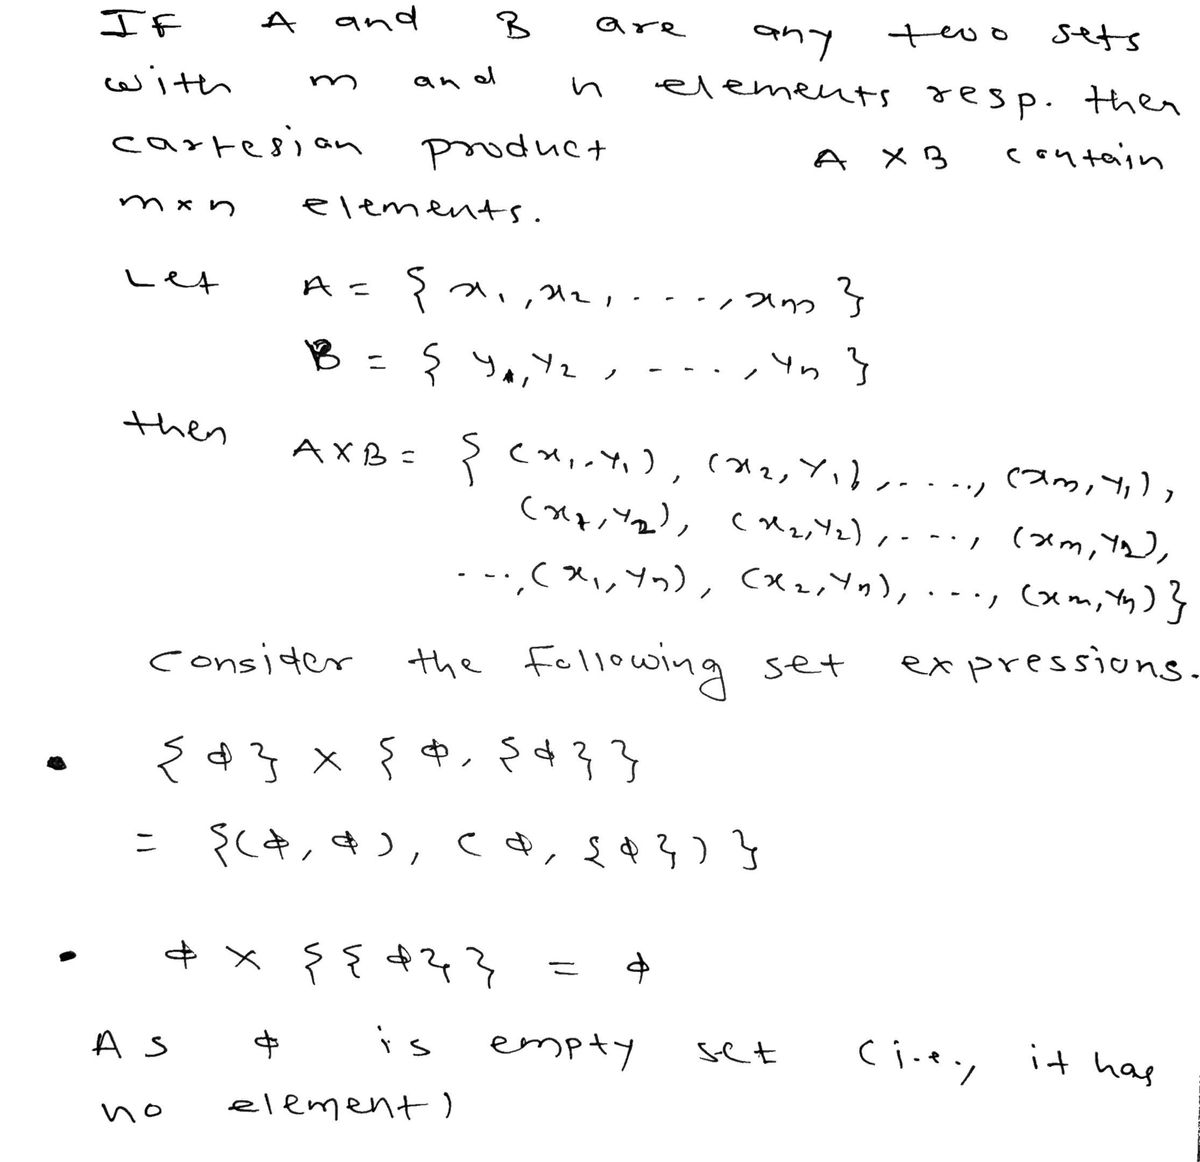 IF A and B are any two sets
with m and n elements resp. then
cartesian product A × B contain
m×n elements.
Let A = { x₁, x₂, ...., xm }
B = { y₁, y₂, ...., yn }
then A×B = { (x₁, y₁), (x₂, y₁), ....., (xm, y₁),
(x₁, y₂), (x₂, y₂), ...., (xm, y₂),
..., (x₁, yn), (x₂, yn), ...., (xm, yn) }
Consider the following set expressions.
• {ϕ} × {ϕ, {ϕ}}
= {(ϕ, ϕ), (ϕ, {ϕ})}
• ϕ × {{ϕ}} = ϕ
As ϕ is empty set (i.e., it has
no element)